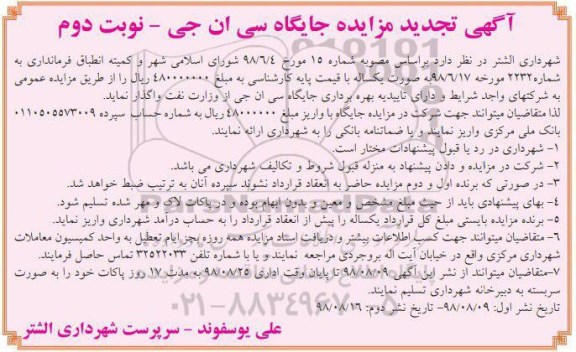 آگهی تجدید مزایده جایگاه سی ان جی - نوبت دوم
شهرداری الشتر در نظر دارد براساس مصوبه شماره ۱۵ مورخ ۹۸/۶/۴ شورای اسلامی شهر و کمیته انطباق فرمانداری به
شماره۲۲۳۲ مورخه ۹۸/۶/۱۷به صورت یکساله با قیمت پایه کارشناسی به مبلغ ۴۸۰۰۰۰۰۰۰ ریال را از طریق مزایده عمومی
به شرکتهای واجد شرایط و دارای تاییدیه بهره برداری جایگاه سی ان جی از وزارت نفت واگذار نماید.
لذا متقاضیان میتوانند جهت شرکت در مزایده جایگاه با واریز مبلغ ۴۸۰۰۰۰۰۰ ریال به شماره حساب سپرده ۰۱۱۰۵۰۵۵۷۳۰۰۹
بانک ملی مرکزی واریز نمایند و یا ضمانتنامه بانکی را به شهرداری ارائه نمایند.
۱- شهرداری در رد یا قبول پیشنهادات مختار است.
۲- شرکت در مزایده و دادن پیشنهاد به منزله قبول شروط و تکالیف شهرداری می باشد.
۳- در صورتی که برنده اول و دوم مزایده حاضر به انعقاد قرارداد نشوند سپرده آنان به ترتیب ضبط خواهد شد.
۴- بهای پیشنهادی باید از حیث مبلغ مشخص و معین و بدون ابهام بوده و در پاکات لاک و مهر شده تسلیم شود.
۵- برنده مزایده بایستی مبلغ کل قرارداد یکساله را پیش از انعقاد قرارداد را به حساب درآمد شهرداری واریز نماید.
۶- متقاضیان میتوانند جهت کسب اطلاعات بیشتر و دریافت اسناد مزایده همه روزه بجز ایام تعطیل به واحد کمیسیون معاملات
شهرداری مرکزی واقع در خیابان آیت اله بروجردی مراجعه نمایند و یا با شماره تلفن ۳۲۵۲۲۰۳۳ تماس حاصل فرمایند.
۷-متقاضیان میتوانند از نشر این آگهی ۹۸/۰۸/۰۹ تا پایان وقت اداری ۹۸/۰۸/۲۵ به مدت ۱۷ روز پاکات خود را به صورت
سربسته به دبیرخانه شهرداری تسلیم نمایند.
تاریخ نشر اول: ۹۸/۰۸/۰۹- تاریخ نشر دوم: ۹۸/۰۸/۱۶
علی یوسفوند - سرپرست شهرداری الشتر
۰۲۱-۸۸۳۴۹۶۷۰-۵